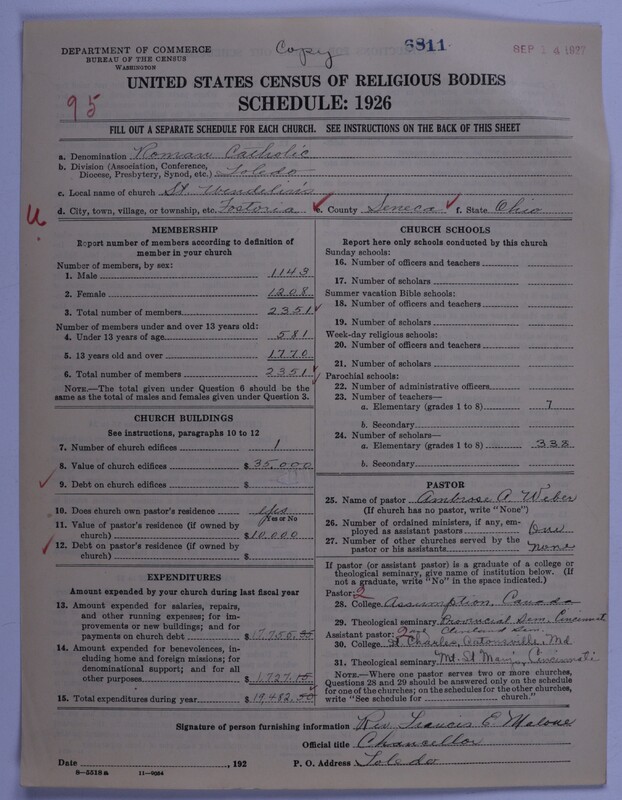 DEPARTMENT OF COMMERCE
BUREAU OF THE CENSUS
WASHINGTON
Copy
6811
SEP 1 1927
UNITED STATES CENSUS OF RELIGIOUS BODIES
95
SCHEDULE: 1926
FILL OUT A SEPARATE SCHEDULE FOR EACH CHURCH. SEE INSTRUCTIONS ON THE BACK OF THIS SHEET
a. Denomination Roman Catholic
b. Division (Association, Conference,
Diocese, Presbytery, Synod, etc.) Toledo
c. Local name of church St Wendelin's
u d. City, town, village, or township, etc. Fostoria e. County Seneca f. State Ohio
MEMBERSHIP
Report number of members according to definition of
member in your church
Number of members, by sex:
1. Male 1143
2. Female 1208
3. Total number of members 2351
Number of members under and over 13 years old:
4. Under 13 years of age 581
5. 13 years old and over 1770
6. Total number of members 2351
NOTE.—The total given under Question 6 should be
same as the total of males and females given under Question 3.
CHURCH BUILDINGS
See instructions, paragraphs 10 to 12
7. Number of church edifices 1
8. Value of church edifices $ 35,000
9. Debt on church edifices $
10. Does church own pastor's residence? yes
Yes or No
11. Value of pastor's residence (if owned by
church) $ 10,000
12. Debt on pastor's residence (if owned by
church) $
EXPENDITURES
Amount expended by your church during last fiscal year
13. Amount expended for salaries, repairs,
and other running expenses; for im-
provements or new buildings; and for
payments on church debt $ 17,755.35
14. Amount expended for benevolences, in-
cluding home and foreign missions; for
denominational support; and for all
other purposes $ 1,727.15
15. Total expenditures during year $ 19,482.50
CHURCH SCHOOLS
Report here only schools conducted by this church
Sunday schools:
16. Number of officers and teachers
17. Number of scholars
Summer vacation Bible schools:
18. Number of officers and teachers
19. Number of scholars
Week-day religious schools:
20. Number of officers and teachers
21. Number of scholars
Parochial schools:
22. Number of administrative officers
23. Number of teachers—
a. Elementary (grades 1 to 8) 7
b. Secondary
24. Number of scholars—
a. Elementary (grades 1 to 8) 338
b. Secondary
PASTOR
25. Name of pastor Ambrose A. Weber
(If church has no pastor, write "None")
26. Number of ordained ministers, if any, em-
ployed as assistant pastors One
27. Number of other churches served by the
pastor or his assistants none
If pastor (or assistant pastor) is a graduate of a college or
theological seminary, give name of institution below. (If
not a graduate, write "No" in the space indicated.)
Pastor: 2
28. College Assumption, Canada
29. Theological seminary Provincial Sem. Cincinnati
Assistant pastor: 2 and Cleveland Sem.
30. College St Charles, Catonsville, Md
31. Theological seminary Mt. St Mary, Cincinnati
NOTE.—Where one pastor serves two or more churches,
Questions 28 and 29 should be answered only on the schedule
for one of the churches; on the schedules for the other churches,
write "See schedule for church."
Signature of person furnishing information Rev Francis E. Malone
Official title Chancellor
Date , 192 P. O. Address Toledo
8—5518a 11—9054